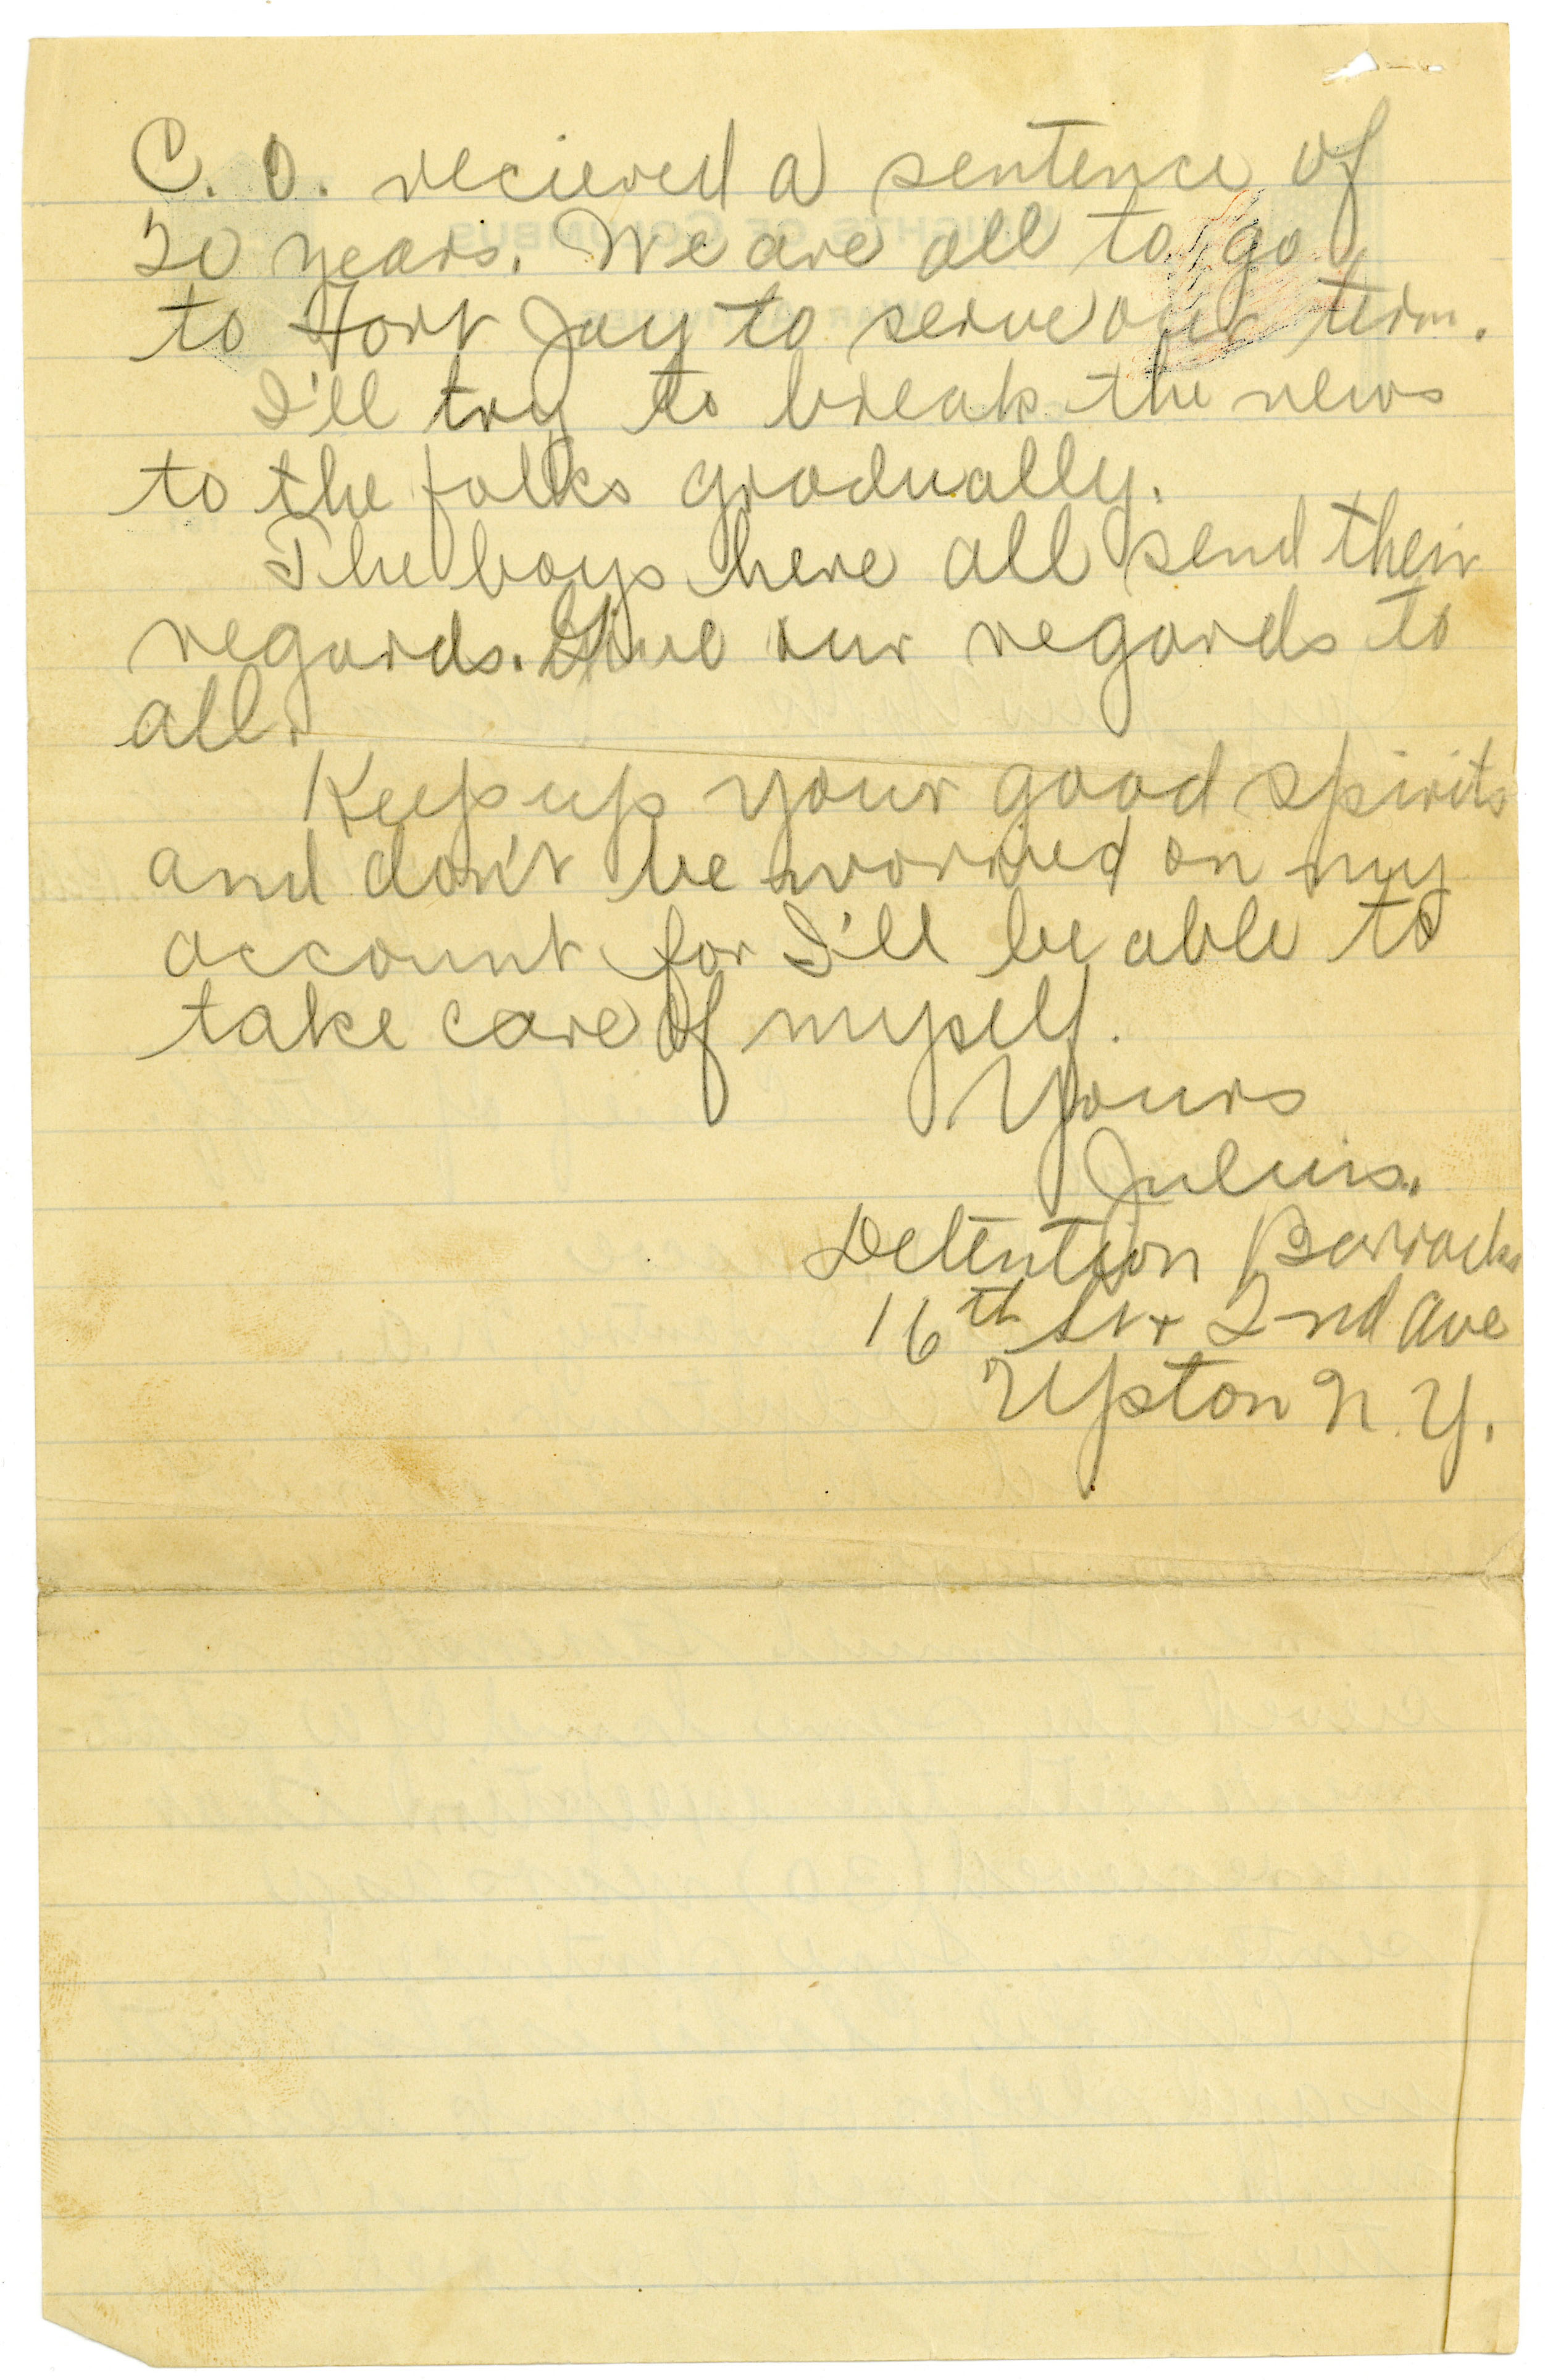 C. O. recieved a sentence of
20 years. We are all to go
to Fort Jay to serve our term.
I'll try to break the news
to the folks gradually.
The boys here all send their
regards. Give our regards to
all.
Keep up your good spirits
and don't be worried on my
account for I'll be able to
take care of myself.
Yours
Julius.
Detention Barracks
16th St + 2nd Ave
Upton N.Y.